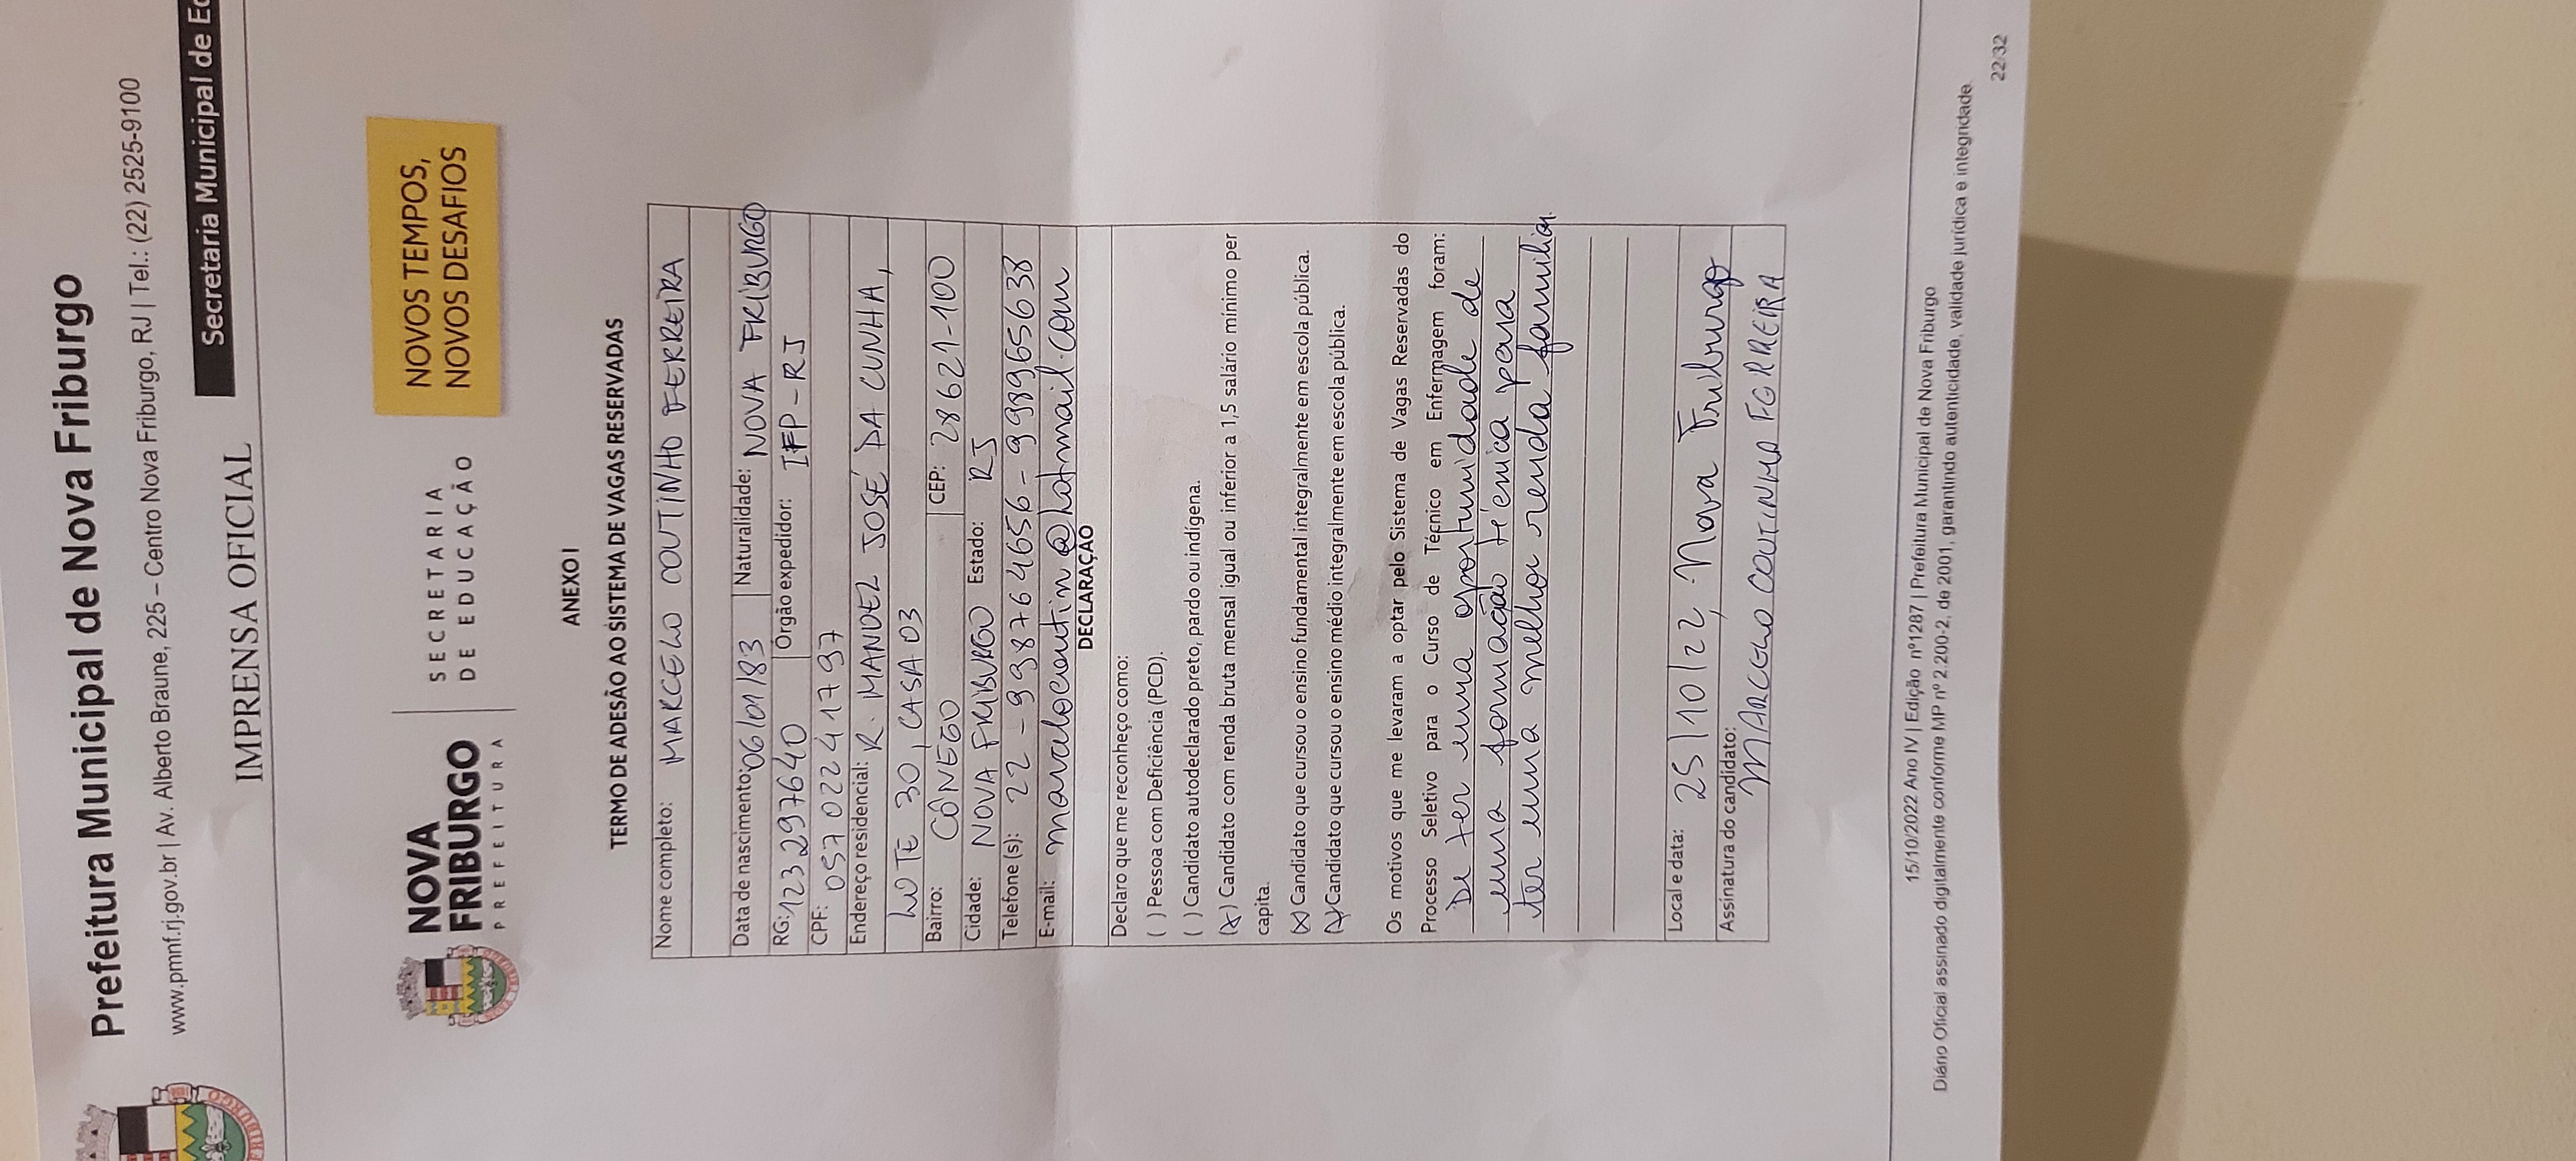 Prefeitura Municipal de Nova Friburgo
www.pmnf.rj.gov.br | Av. Alberto Braune, 225 – Centro Nova Friburgo, RJ | Tel.: (22) 2525-9100
Secretaria Municipal de Ed
IMPRENSA OFICIAL
NOVA FRIBURGO PREFEITURA
SECRETARIA DE EDUCAÇÃO
NOVOS TEMPOS,
NOVOS DESAFIOS
ANEXO I
TERMO DE ADESÃO AO SISTEMA DE VAGAS RESERVADAS
Nome completo: MARCELO COUTINHO FERREIRA
Data de nascimento: 06/01/83 Naturalidade: NOVA FRIBURGO
RG: 123297640 Órgão expedidor: IFP-RJ
CPF: 05702241797
Endereço residencial: R. MANOEL JOSÉ DA CUNHA,
LOTE 30, CASA 03
Bairro: CÔNEGO CEP: 28621-100
Cidade: NOVA FRIBURGO Estado: RJ
Telefone (s): 22 - 998764656 - 998965638
E-mail: @hotmail.com
DECLARAÇÃO
Declaro que me reconheço como:
( ) Pessoa com Deficiência (PCD).
( ) Candidato autodeclarado preto, pardo ou indígena.
(X) Candidato com renda bruta mensal igual ou inferior a 1,5 salário mínimo per
capita.
(X) Candidato que cursou o ensino fundamental integralmente em escola pública.
(X) Candidato que cursou o ensino médio integralmente em escola pública.
Os motivos que me levaram a optar pelo Sistema de Vagas Reservadas do
Processo Seletivo para o Curso de Técnico em Enfermagem foram:
De ter uma oportunidade de
uma formação técnica para
ter uma melhor renda familiar.
Local e data: 25/10/22, Nova Friburgo
Assinatura do candidato:
MARCELO COUTINHO FERREIRA
15/10/2022 Ano IV | Edição nº1287 | Prefeitura Municipal de Nova Friburgo
Diário Oficial assinado digitalmente conforme MP nº 2.200-2, de 2001, garantindo autenticidade, validade jurídica e integridade.
22/32